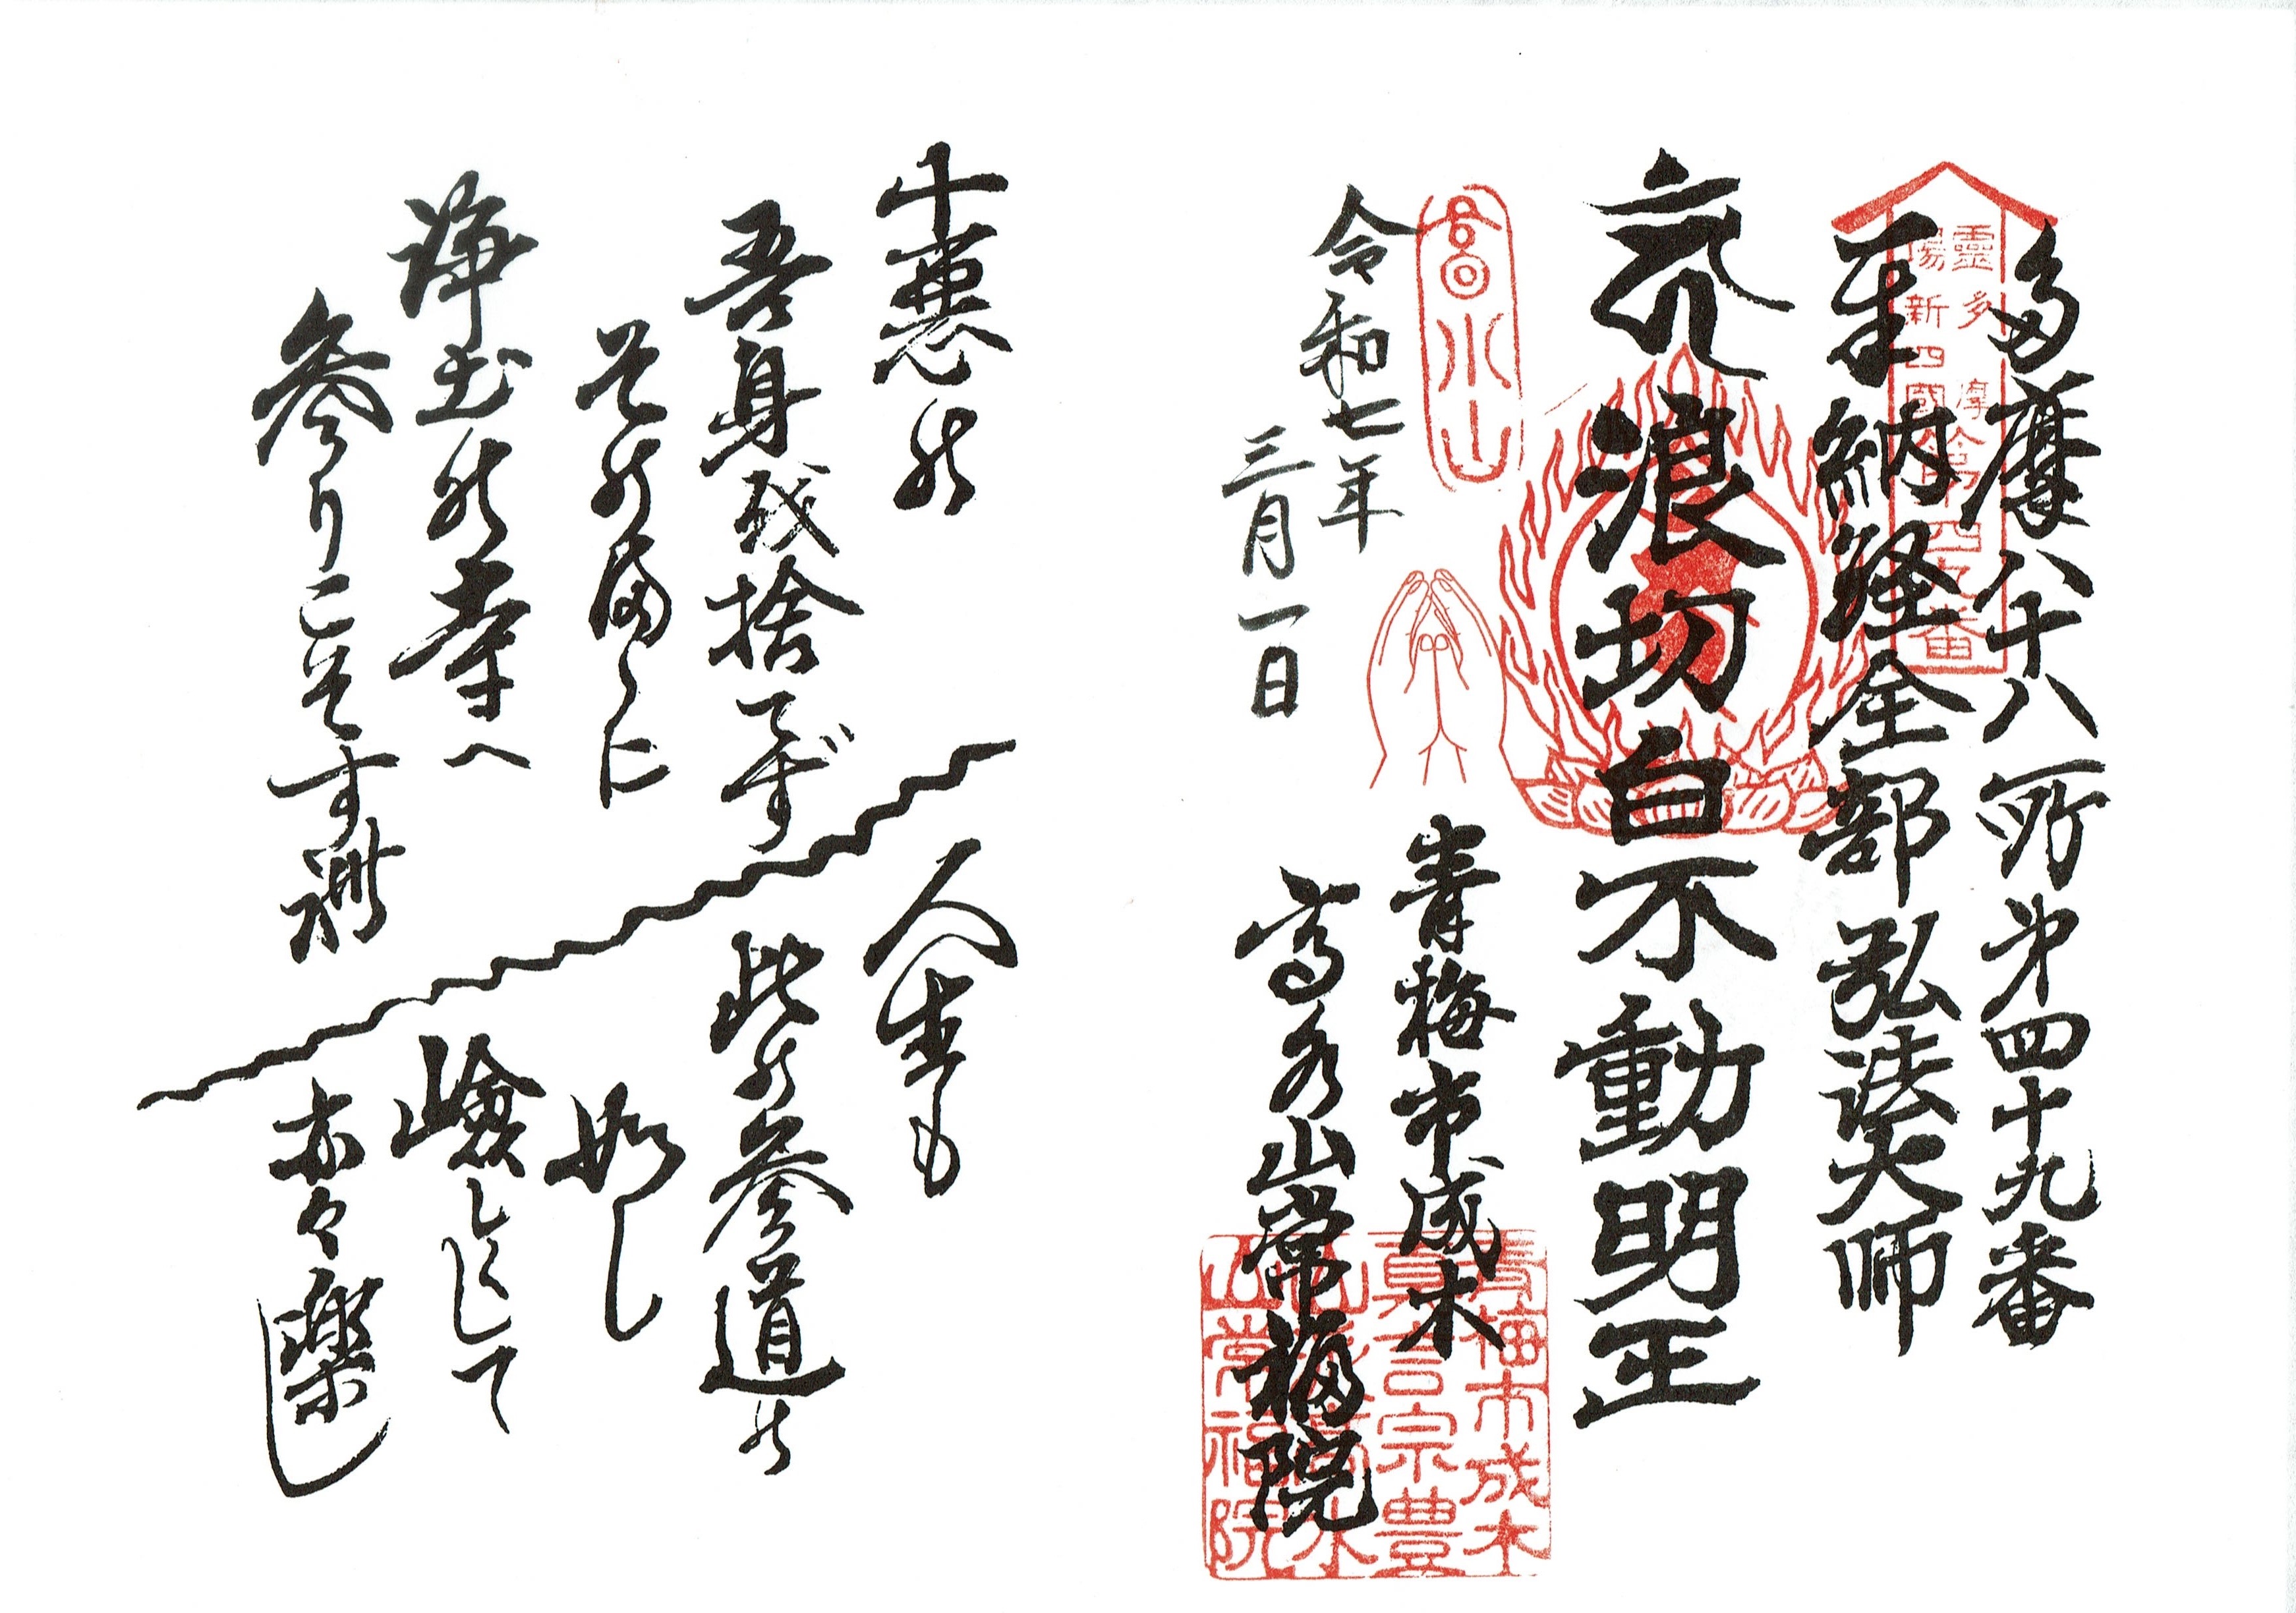 多摩八十八所第四十九番
奉納経全部 弘法大師
浪切白不動明王
令和七年
三月一日
青梅市成木
高水山常福院
高水山
第四九番
青梅市成木
真言宗豊
常福院
十悪の
吾身を捨てず
そのまゝに
浄土の寺へ
参りこそすれ
人生も
此の参道の
如し
嶮しくして
亦々楽し